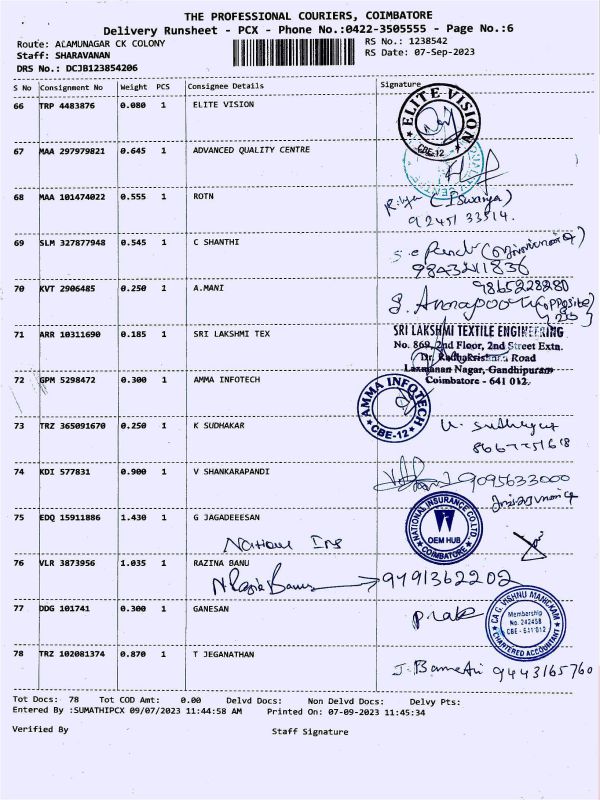 THE PROFESSIONAL COURIERS, COIMBATORE
Delivery Runsheet - PCX - Phone No.:0422-3505555 - Page No.:6
Route: ALAMUNAGAR CK COLONY RS No.: 1238542
Staff: SHARAVANAN RS Date: 07-Sep-2023
DRS No.: DCJB123854206
S No Consignment No Weight PCS Consignee Details Signature
66 TRP 4483876 0.080 1 ELITE VISION
ELITE VISION
CBE-12
67 MAA 297979821 0.645 1 ADVANCED QUALITY CENTRE
68 MAA 101474022 0.555 1 ROTN
(Iswarya)
92451 33514.
69 SLM 327877948 0.545 1 C SHANTHI
70 KVT 2906485 0.250 1 A.MANI
9865228280
(opposite)
71 ARR 10311690 0.185 1 SRI LAKSHMI TEX
SRI LAKSHMI TEXTILE ENGINEERING
No. 869, 2nd Floor, 2nd Street Extn.
Dr. Radhakrishnan Road
Laxmanan Nagar, Gandhipuram
Coimbatore - 641 012.
72 GPM 5298472 0.300 1 AMMA INFOTECH
AMMA INFOTECH
CBE-12
73 TRZ 365091670 0.250 1 K SUDHAKAR
74 KDI 577831 0.900 1 V SHANKARAPANDI
9095633000
75 EDQ 15911886 1.430 1 G JAGADEEESAN
NATIONAL INSURANCE CO.LTD.
OEM HUB
COIMBATORE
National Ins
76 VLR 3873956 1.035 1 RAZINA BANU
N Razia Banu 9491362202
77 DDG 101741 0.300 1 GANESAN
CA G. VISHNU MANICKAM
Membership
No. 242458
CBE - 641 012
CHARTERED ACCOUNTANT
78 TRZ 102081374 0.870 1 T JEGANATHAN
9443165760
Tot Docs: 78 Tot COD Amt: 0.00 Delvd Docs: Non Delvd Docs: Delvy Pts:
Entered By :SUMATHIPCX 09/07/2023 11:44:58 AM Printed On: 07-09-2023 11:45:34
Verified By Staff Signature